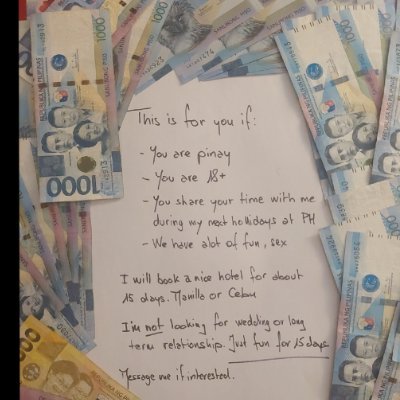 This is for you if:
- You are pinay
- You are 18+
- You share your time with me
during my next holidays at PH
- We have alot of fun, sex
I will book a nice hotel for about
15 days. Manilla or Cebu
I'm not looking for wedding or long
term relationship. Just fun for 15 days
Message me if interested.
1000
1000
REPUBLIKA NG PILIPINAS